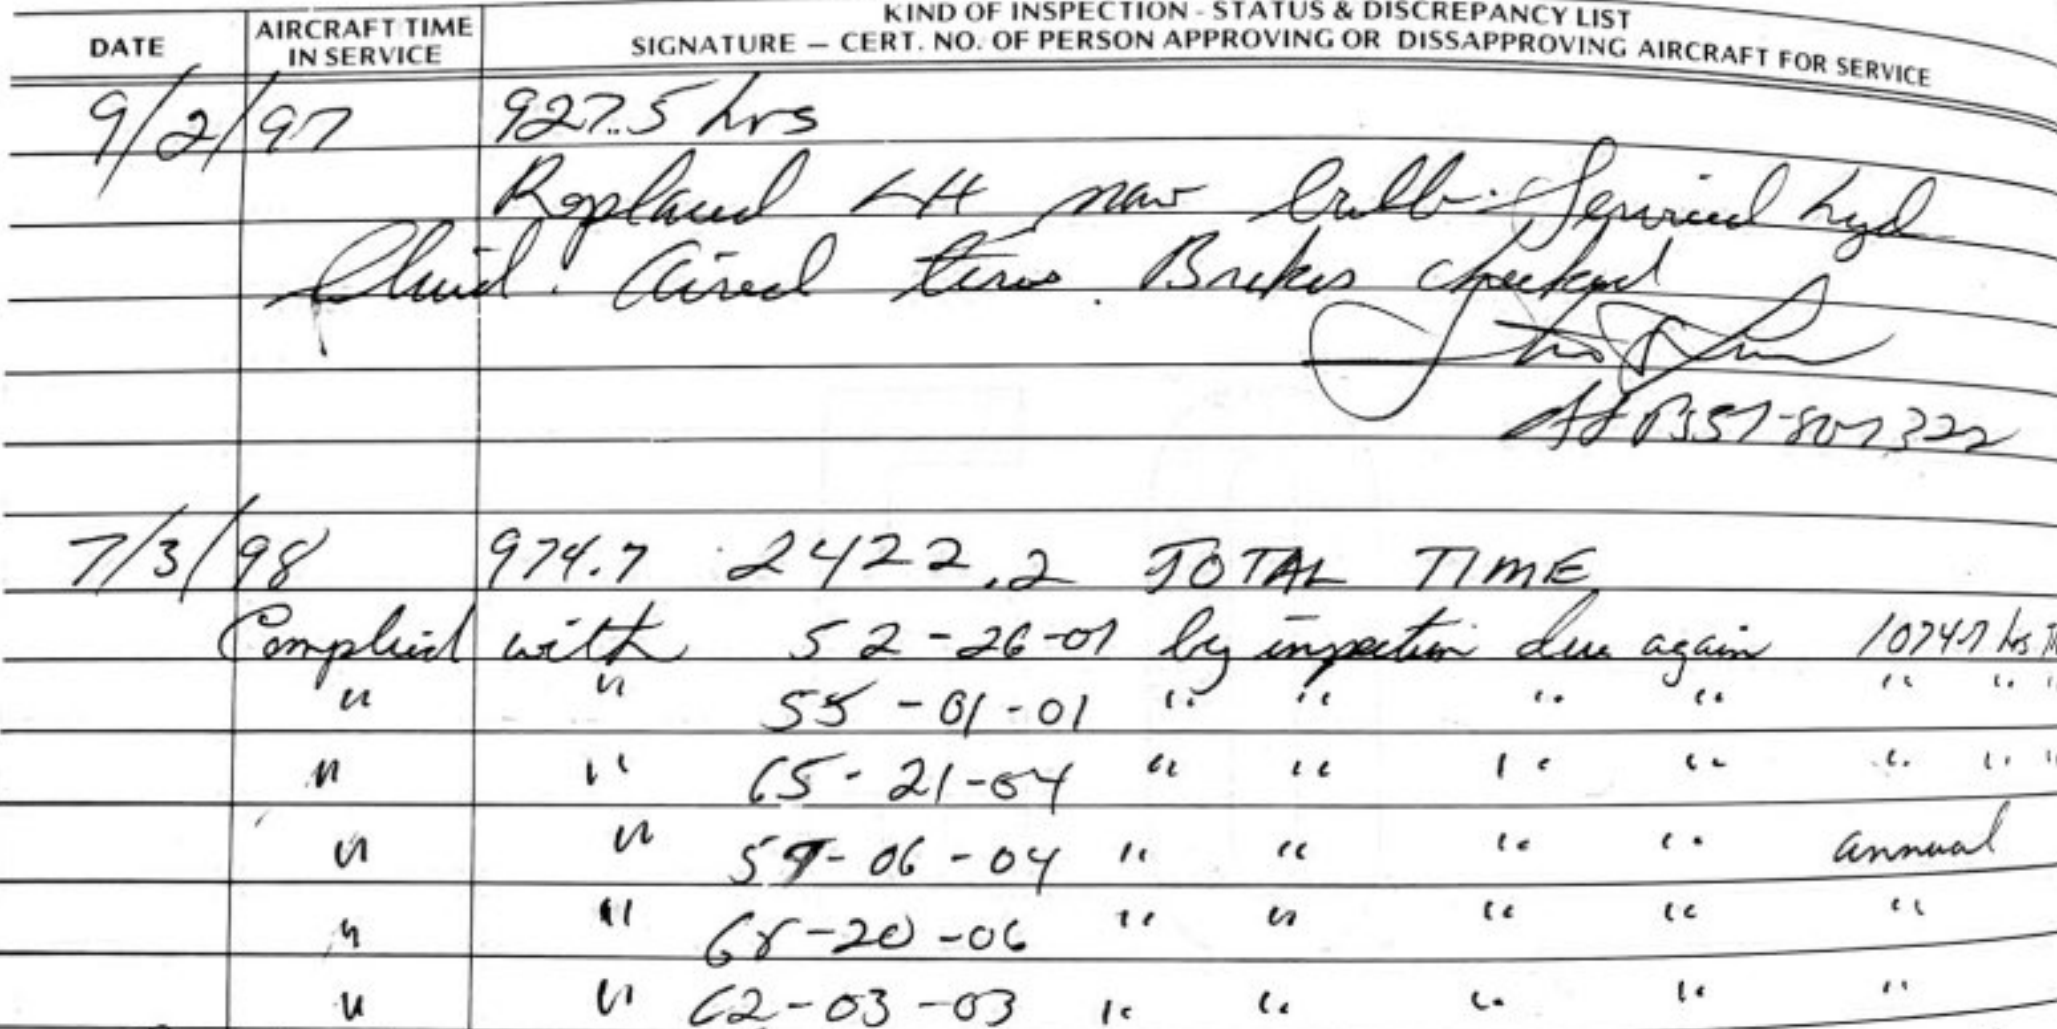 DATE
AIRCRAFT TIME
IN SERVICE
KIND OF INSPECTION - STATUS & DISCREPANCY LIST
SIGNATURE — CERT. NO. OF PERSON APPROVING OR DISSAPPROVING AIRCRAFT FOR SERVICE
9/2/97 927.5 hrs
Replaced LH nav bulb. Serviced hyd
fluid. Aired tires. Brakes checked
7/3/98 974.7 2422.2 TOTAL TIME
Complied with 52-26-01 by inspection due again 1074.7 hrs
" " 55-01-01 " " " " " " "
" " 65-21-04 " " " " " " "
" " 59-06-04 " " " " annual
" " 68-20-06 " " " " "
" " 62-03-03 " " " " "